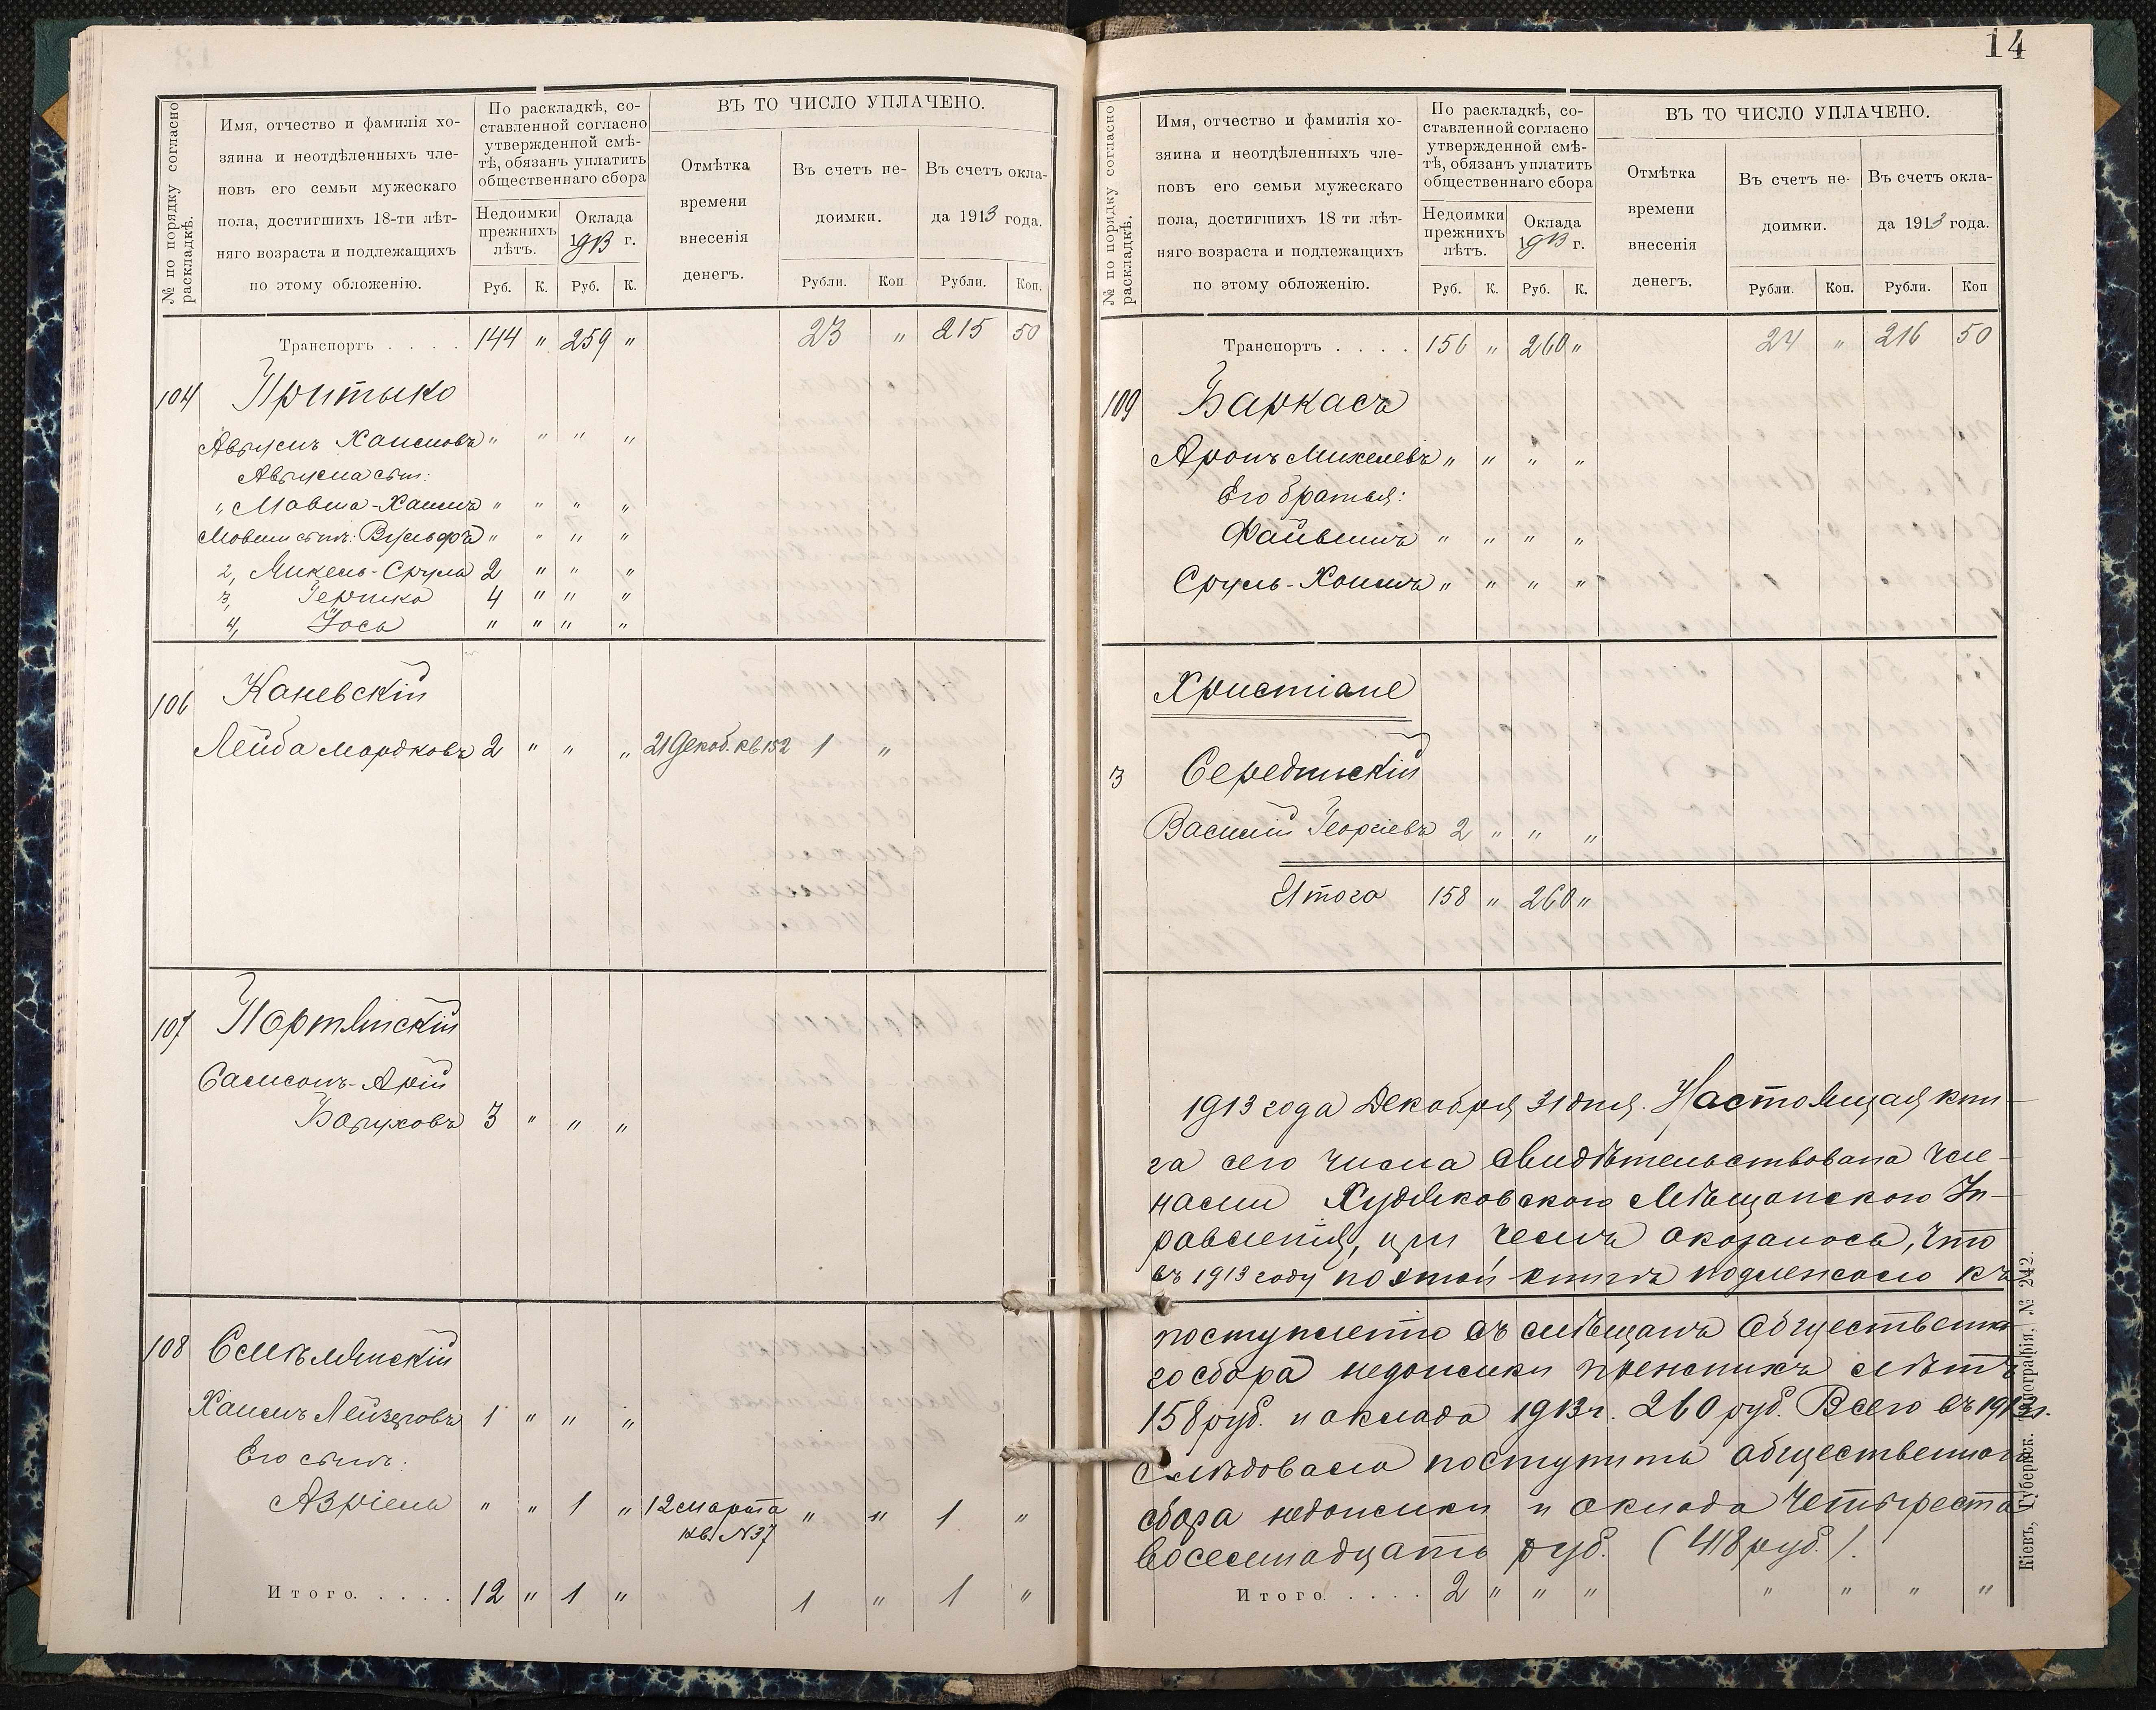 № по порядку согласно раскладкѣ.
Имя, отчество и фамилія хо-
зяина и неотдѣленныхъ чле-
новъ его семьи мужескаго
пола, достигшихъ 18-ти лѣт-
няго возраста и подлежащихъ
по этому обложенію.
По раскладкѣ, со-
ставленной согласно
утвержденной смѣ-
тѣ, обязанъ уплатить
общественнаго сбора
Недоимки
прежнихъ
лѣтъ.
Оклада
1913 г.
Руб. К. Руб. К.
ВЪ ТО ЧИСЛО УПЛАЧЕНО.
Отмѣтка
времени
внесенія
денегъ.
Въ счетъ не-
доимки.
Въ счетъ окла-
да 1913 года.
Рубли. Коп Рубли. Коп.
Транспортъ . . . . 144 " 259 " 23 " 215 50
104 Притыко
Аврумъ Хаимовъ " " " "
Аврума сын:
" Мовша-Хаимъ " " " "
Мовши сынъ: Вульфъ " " " "
2, Михель-Сруль 2 " " "
3, Гершко 4 " " "
4, Іось " " " "
106 Каневскій
Лейба Мордковъ 2 " " " 21 Декаб. кв. 152 1 "
107 Портянскій
Самсонъ-Арій
Боруховъ 3 " " "
108 Смѣлянскій
Хаимъ Лейзеровъ 1 " " "
Его сынъ:
Азріель " " 1 " 12 марта " " 1 "
кв. №37
Итого. . . . . 12 " 1 " 1 " 1 "
14
№ по порядку согласно раскладкѣ.
Имя, отчество и фамилія хо-
зяина и неотдѣленныхъ чле-
новъ его семьи мужескаго
пола, достигшихъ 18 ти лѣт-
няго возраста и подлежащихъ
по этому обложенію.
По раскладкѣ, со-
ставленной согласно
утвержденной смѣ-
тѣ, обязанъ уплатить
общественнаго сбора
Недоимки
прежнихъ
лѣтъ.
Оклада
1913 г.
Руб. К. Руб. К.
ВЪ ТО ЧИСЛО УПЛАЧЕНО.
Отмѣтка
времени
внесенія
денегъ.
Въ счетъ не-
доимки.
Въ счетъ окла-
да 1913 года.
Рубли. Коп. Рубли. Коп
Транспортъ . . . . 156 " 260 " 24 " 216 50
109 Баркасъ
Аронъ Михелевъ " " " "
Его братья:
Файвишъ " " " "
Сруль-Хаимъ " " " "
Христіане
3 Серединскій
Василій Георгіевъ 2 " " "
Итого 158 " 260 "
1913 года Декабря 31 дня. Настоящая кни-
га сего числа свидѣтельствована чле-
нами Худяковского Мѣщанского Уп-
равленія, при чемъ оказалось, что
въ 1913 году по этой книгѣ подлежало къ
поступленію съ мѣщанъ общественна
го сбора недоимки прежнихъ лѣтъ
158 руб. и оклада 1913 г. 260 руб. Всего въ 1913 г.
слѣдовало поступить общественного
сбора недоимки и оклада четыреста
восемнадцать руб. (418 руб.).
Итого . . . . 2 " " " " " " "
Кіевъ, Губернск. Типографія. № 242.